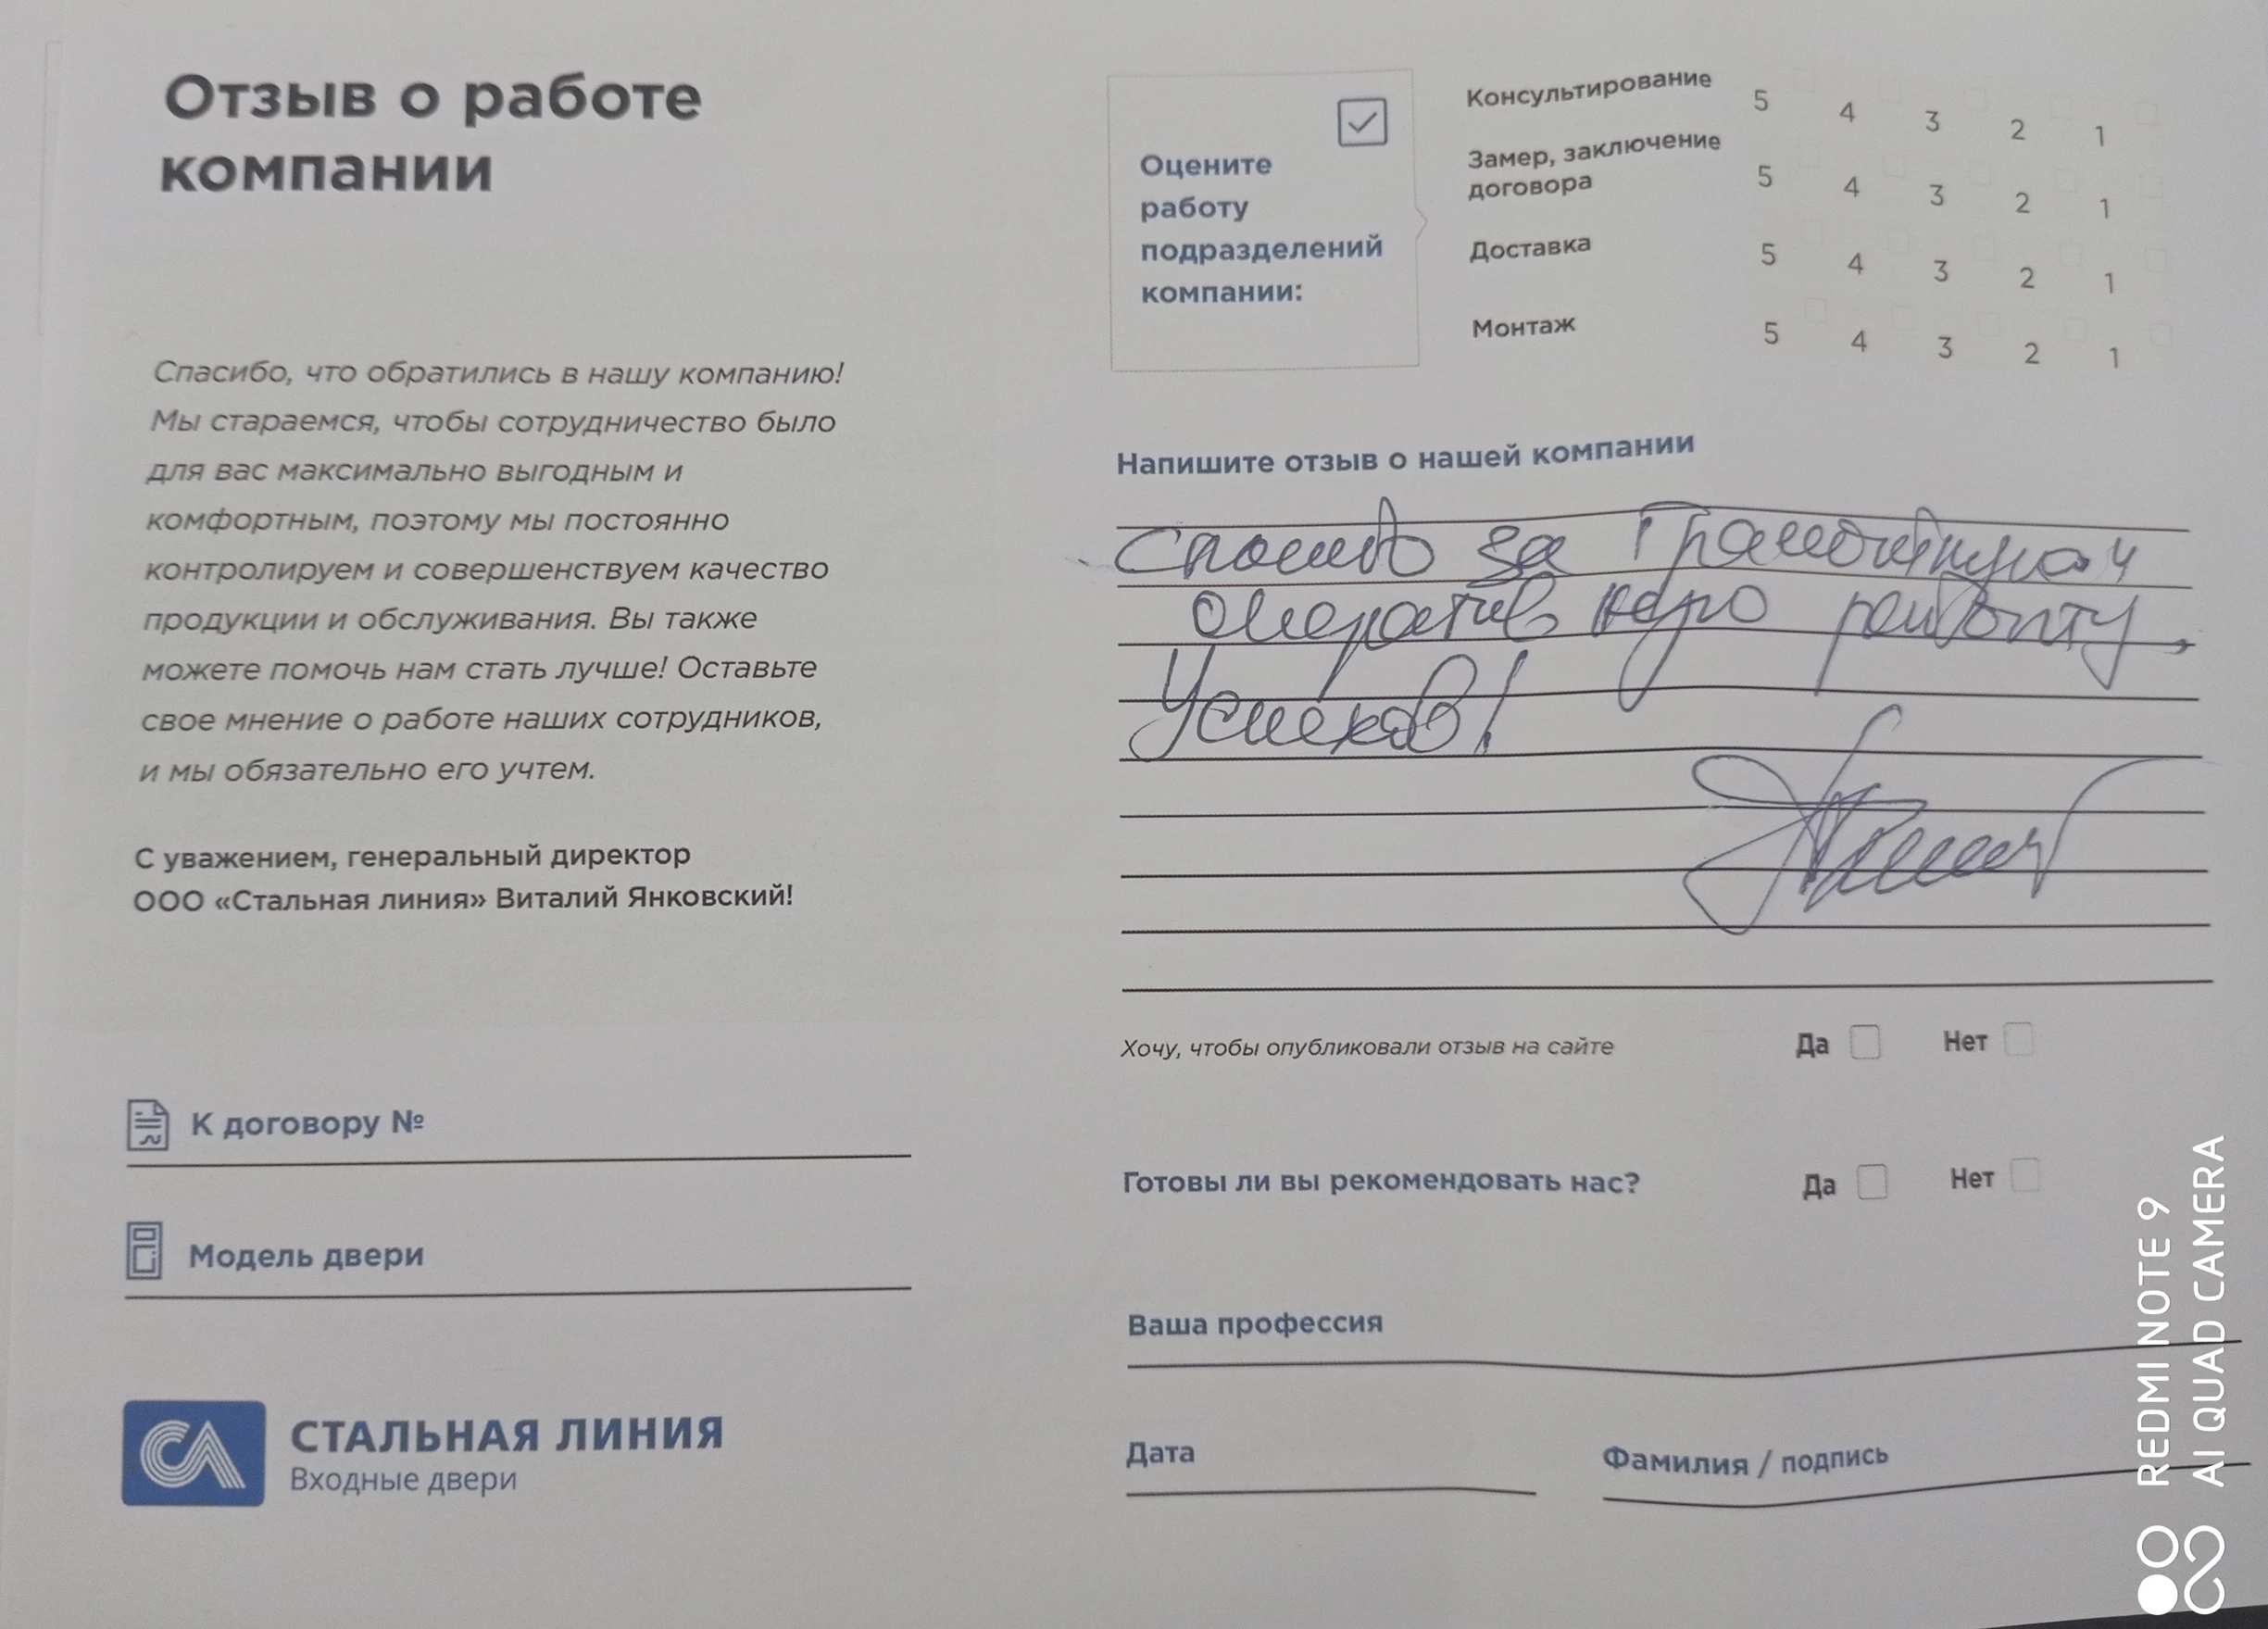 Отзыв о работе
компании
Спасибо, что обратились в нашу компанию!
Мы стараемся, чтобы сотрудничество было
для вас максимально выгодным и
комфортным, поэтому мы постоянно
контролируем и совершенствуем качество
продукции и обслуживания. Вы также
можете помочь нам стать лучше! Оставьте
свое мнение о работе наших сотрудников,
и мы обязательно его учтем.
С уважением, генеральный директор
ООО «Стальная линия» Виталий Янковский!
К договору №
Модель двери
СТАЛЬНАЯ ЛИНИЯ
Входные двери
Оцените
работу
подразделений
компании:
Консультирование 5 4 3 2 1
Замер, заключение
договора 5 4 3 2 1
Доставка 5 4 3 2 1
Монтаж 5 4 3 2 1
Напишите отзыв о нашей компании
Спасибо за грамотную и
оперативную работу.
Успехов!
Хочу, чтобы опубликовали отзыв на сайте Да Нет
Готовы ли вы рекомендовать нас? Да Нет
Ваша профессия
Дата Фамилия / подпись
REDMI NOTE 9
AI QUAD CAMERA